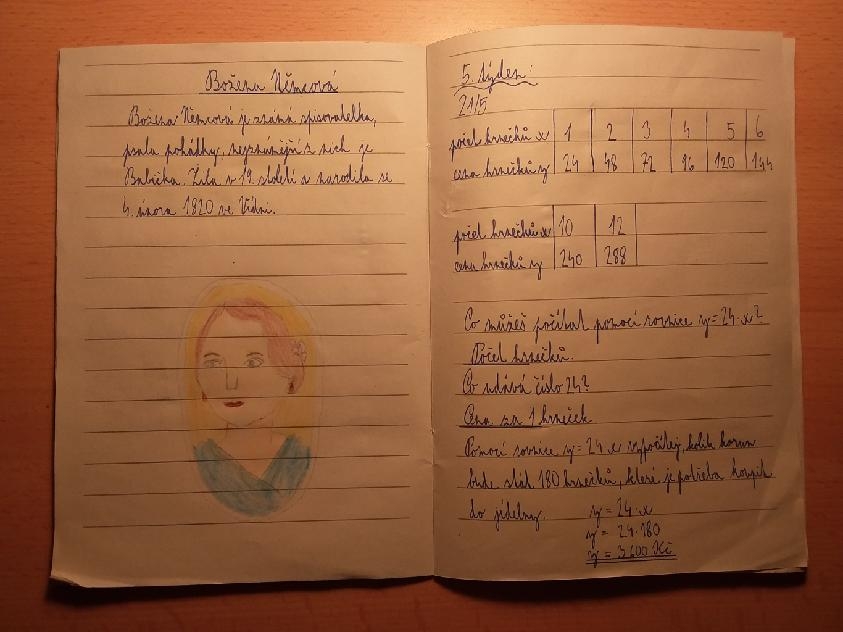 Božena Němcová
Božena Němcová je známá spisovatelka,
psala pohádky, nejznámější z nich je
Babička. Žila v 19. století a narodila se
4. února 1820 ve Vídni.
5. týden:
21/5
počet hrnečků x 1 2 3 4 5 6
cena hrnečků y 24 48 72 96 120 144
počet hrnečků x 10 12
cena hrnečků y 240 288
Co můžeš počítat pomocí rovnice y = 24·x?
Počet hrnečků.
Co udává číslo 24?
Cena za 1 hrneček
Pomocí rovnice y = 24·x vypočítej, kolik korun
bude stát 180 hrnečků, které je potřeba koupit
do jídelny.
y = 24·x
y = 24·180
y = 3600 Kč